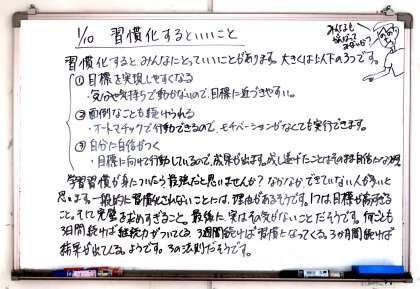 1/10 習慣化するといいこと
習慣化するとみんなにとっていいことがあります。大きくは以下の3つです。
① 目標を実現しやすくなる
・気分や気持ちで動かないので、目標に近づきやすい。
② 面倒なことも続けられる
・オートマチックで行動できるので、モチベーションがなくても実行できます。
③ 自分に自信がつく
・目標に向けて行動しているので、成果が出ます。成し遂げたことはその都度自信になります
学習習慣が身についたら最強だと思いませんか?なかなかできていない人が多いと
思います。一般的に習慣化されないことには、理由があるそうです。1つは目標が高すぎる
こと。そして完璧を求めすぎること。最後に、実はその気がないことだそうです。何ごとも
3日間続けば継続力がついてくる 3週間続けば習慣となってくる。3か月間続けば
結果が出てくる。ようです。3の法則だそうです。